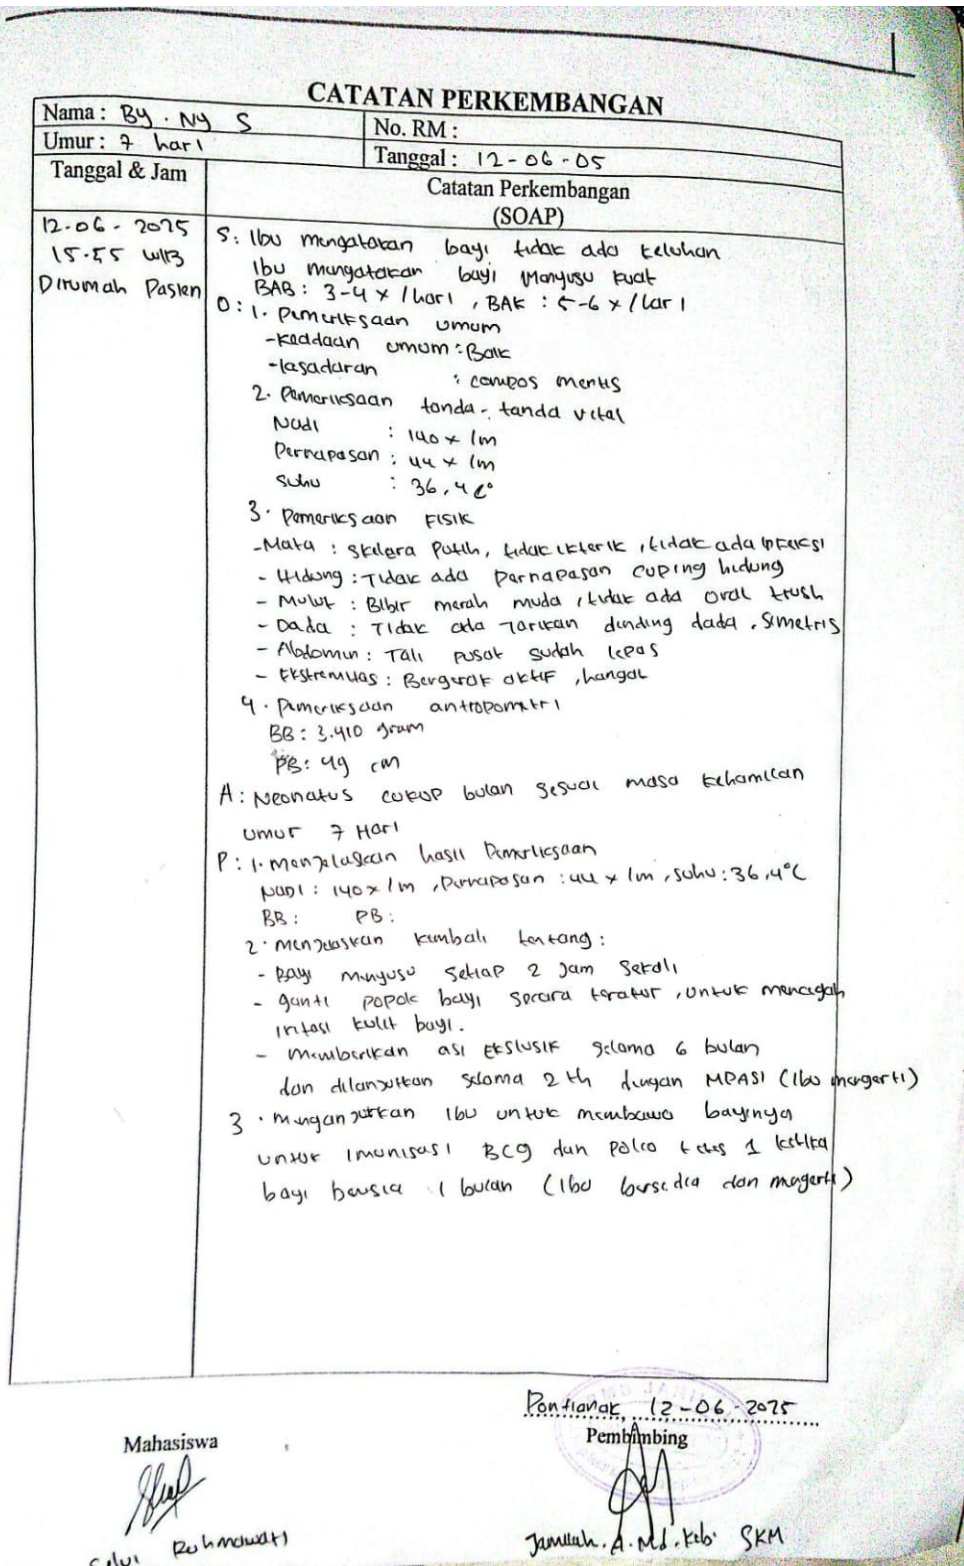 CATATAN PERKEMBANGAN
Nama : By. Ny S
No. RM :
Umur : 7 hari
Tanggal : 12-06-05
Tanggal & Jam
Catatan Perkembangan
(SOAP)
12-06-2025
15.55 WIB
Dirumah Pasien
S: Ibu mengatakan bayi tidak ada keluhan
Ibu mengatakan bayi menyusu kuat
BAB: 3-4 x /hari, BAK : 5-6 x /hari
O: 1. Pemeriksaan umum
- Keadaan umum : Baik
- kesadaran : compos mentis
2. Pemeriksaan tanda-tanda vital
Nadi : 140 x /m
Pernapasan : 44 x /m
Suhu : 36,4 c°
3. Pemeriksaan Fisik
- Mata : Sklera Putih, tidak ikterik, tidak ada infeksi
- Hidung : Tidak ada pernapasan cuping hidung
- Mulut : Bibir merah muda, tidak ada oral trush
- Dada : Tidak ada Tarikan dinding dada, Simetris
- Abdomen : Tali pusat sudah lepas
- Ekstremitas : Bergerak aktif, hangat
4. Pemeriksaan antropometri
BB : 3.410 gram
PB : 49 cm
A : Neonatus cukup bulan sesuai masa kehamilan
umur 7 Hari
P : 1. Menjelaskan hasil Pemeriksaan
Nadi : 140 x /m, Pernapasan : 44 x /m, Suhu : 36,4°C
BB : PB :
2. Menjelaskan kembali tentang :
- Bayi menyusu setiap 2 jam sekali
- ganti popok bayi secara teratur, untuk mencegah
iritasi kulit bayi.
- Memberikan asi Ekslusif selama 6 bulan
dan dilanjutkan selama 2 th dengan MPASI (Ibu mengerti)
3. Menganjurkan Ibu untuk membawa bayinya
untuk Imunisasi BCG dan Polio tetes 1 ketika
bayi berusia 1 bulan (Ibu bersedia dan megerti)
Pontianak, 12-06-2025
Mahasiswa
Pembimbing
Rohmawati
Jamilah. A.Md. Keb. SKM